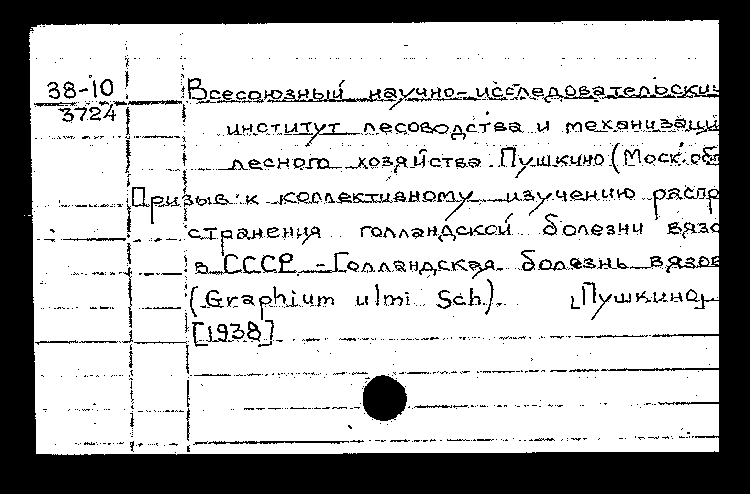 38-10
3724
Всесоюзный научно-исследовательски
институт лесоводства и механизаци
лесного хозяйства. Пушкино (Моск. об
Призыв к коллективному изучению распр
странения голландской болезни вязо
в СССР. - Голландская болезнь вязов
(Graphium ulmi Sch.). [Пушкино]
[1938]